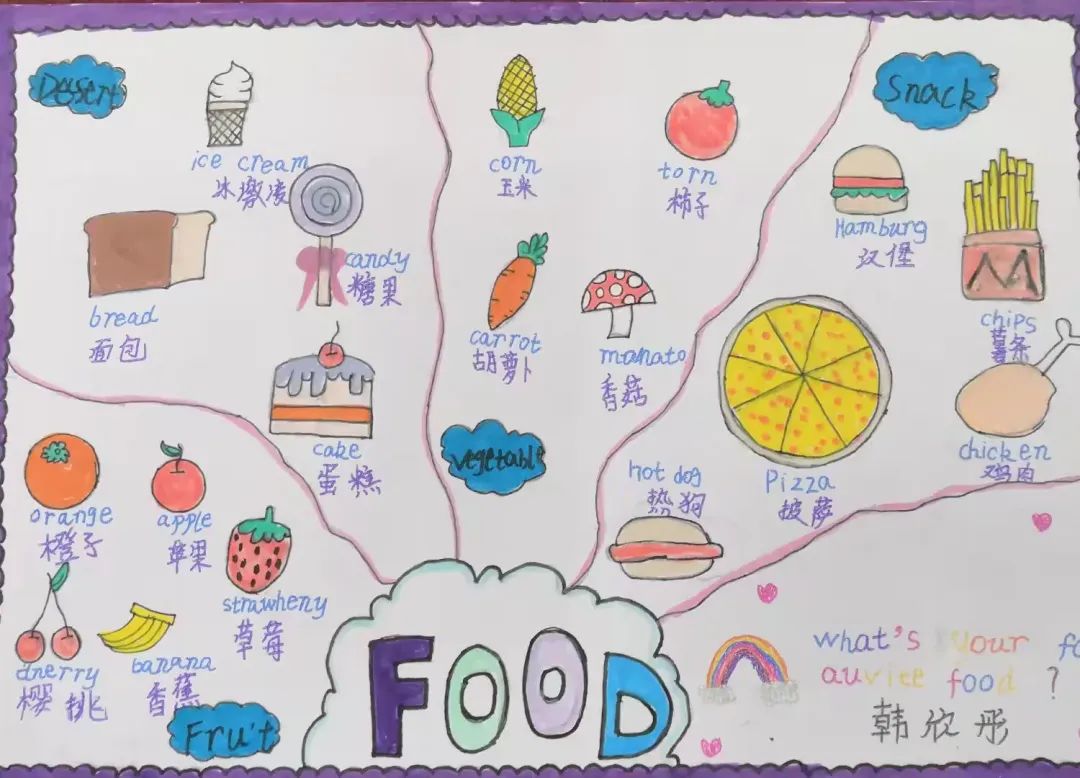 Dessert
ice cream
冰激凌
candy
糖果
bread
面包
cake
蛋糕
corn
玉米
torn
柿子
carrot
胡萝卜
manato
香菇
vegetable
Snack
Hamburg
汉堡
chips
薯条
chicken
鸡肉
Pizza
披萨
hot dog
热狗
orange
橙子
apple
苹果
strawheny
草莓
dherry
樱桃
banana
香蕉
Fruit
FOOD
what's your fa
auvite food ?
韩欣彤